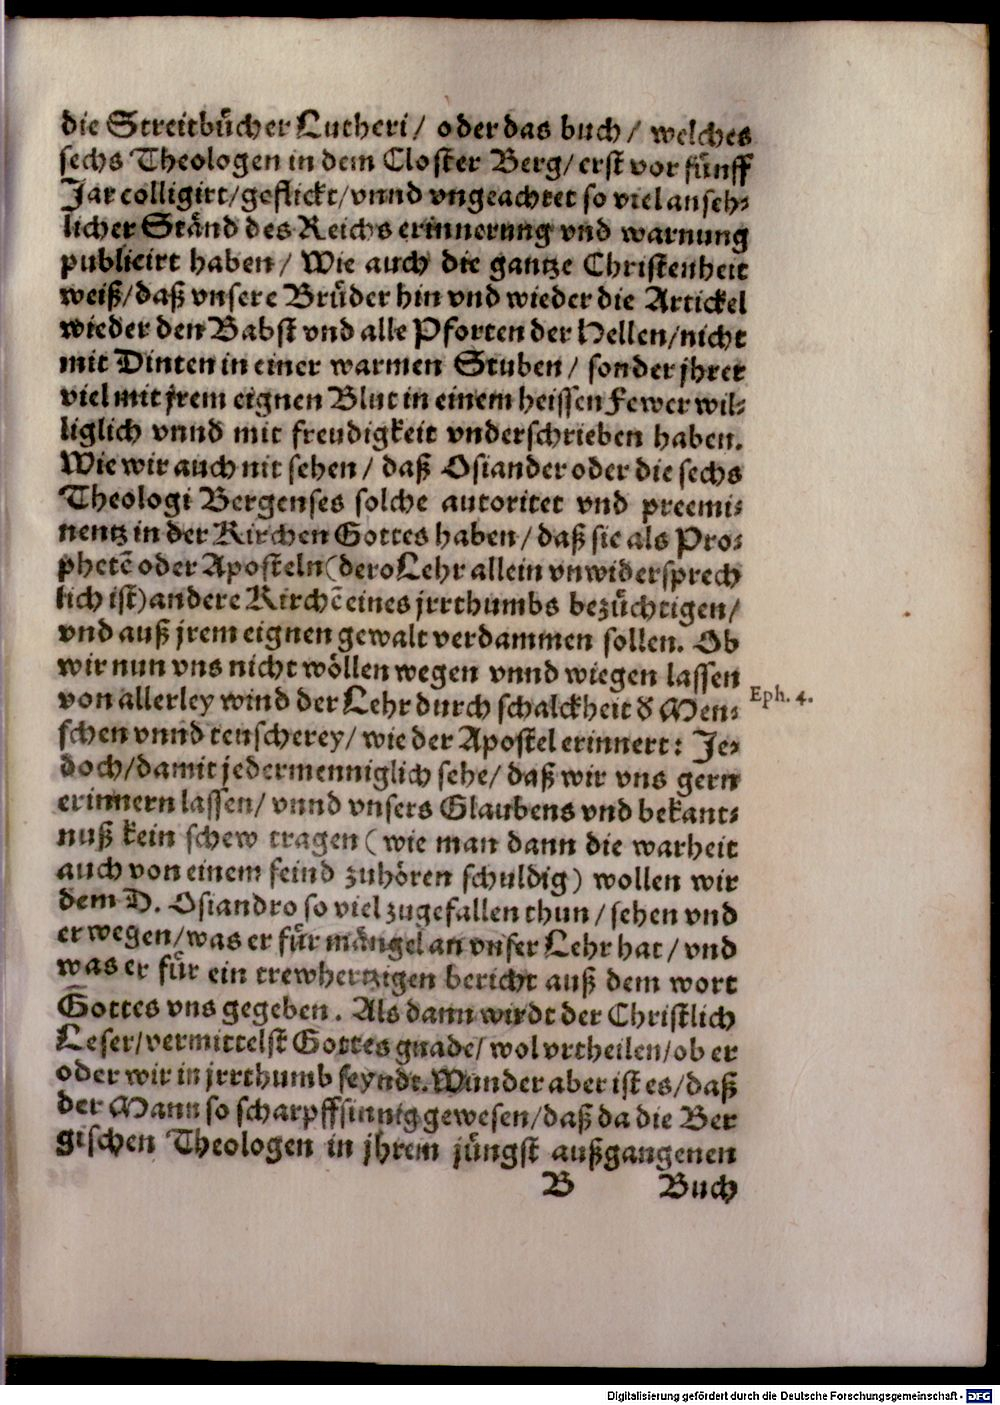 die Streitbuͤcher Lutheri/ oder das buch/ welches
sechs Theologen in dem Closter Berg/ erst vor fuͤnff
Jar colligirt/geflickt/vnnd vngeachtet so viel anseh⸗
licher Staͤnd des Reichs erinnerung vnd warnung
publicirt haben/ Wie auch die gantze Christenheit
weiß/daß vnsere Bruͤder hin vnd wieder die Artickel
wieder den Babst vnd alle Pforten der Hellen/nicht
mit Dinten in einer warmen Stuben/ sonder jhrer
viel mit jrem eignen Blut in einem heissen Fewer wil⸗
liglich vnnd mit freudigkeit vnderschrieben haben.
Wie wir auch nit sehen/ daß Osiander oder die sechs
Theologi Bergenses solche autoritet vnd preemi⸗
nentz in der Kirchen Gottes haben/daß sie als Pro⸗
phetẽ oder Aposteln(dero Lehr allein vnwidersprech
lich ist)andere Kirchẽ eines jrrthumbs bezuͤchtigen/
vnd auß jrem eignen gewalt verdammen sollen. Ob
wir nun vns nicht woͤllen wegen vnnd wiegen lassen
von allerley wind der Lehr durch schalckheit ð Men⸗
schen vnnd teuscherey/ wie der Apostel erinnert: Je⸗
doch/damit jedermenniglich sehe/ daß wir vns gern
erinnern lassen/ vnnd vnsers Glaubens vnd bekant⸗
nuß kein schew tragen (wie man dann die warheit
auch von einem feind zuhoͤren schuldig) wollen wir
dem D. Osiandro so viel zugefallen thun/ sehen vnd
erwegen/was er fuͤr maͤngel an vnser Lehr hat/ vnd
was er fuͤr ein trewhertzigen bericht auß dem wort
Gottes vns gegeben. Als dann wirdt der Christlich
Leser/vermittelst Gottes gnade/ wol vrtheilen/ob er
oder wir in jrrthumb seyndt. Wunder aber ist es/daß
der Mann so scharpffsinnig gewesen/daß da die Ber
gischen Theologen in jhrem juͤngst außgangenen
B Buch
Eph. 4.
Digitalisierung gefördert durch die Deutsche Forschungsgemeinschaft - DFG